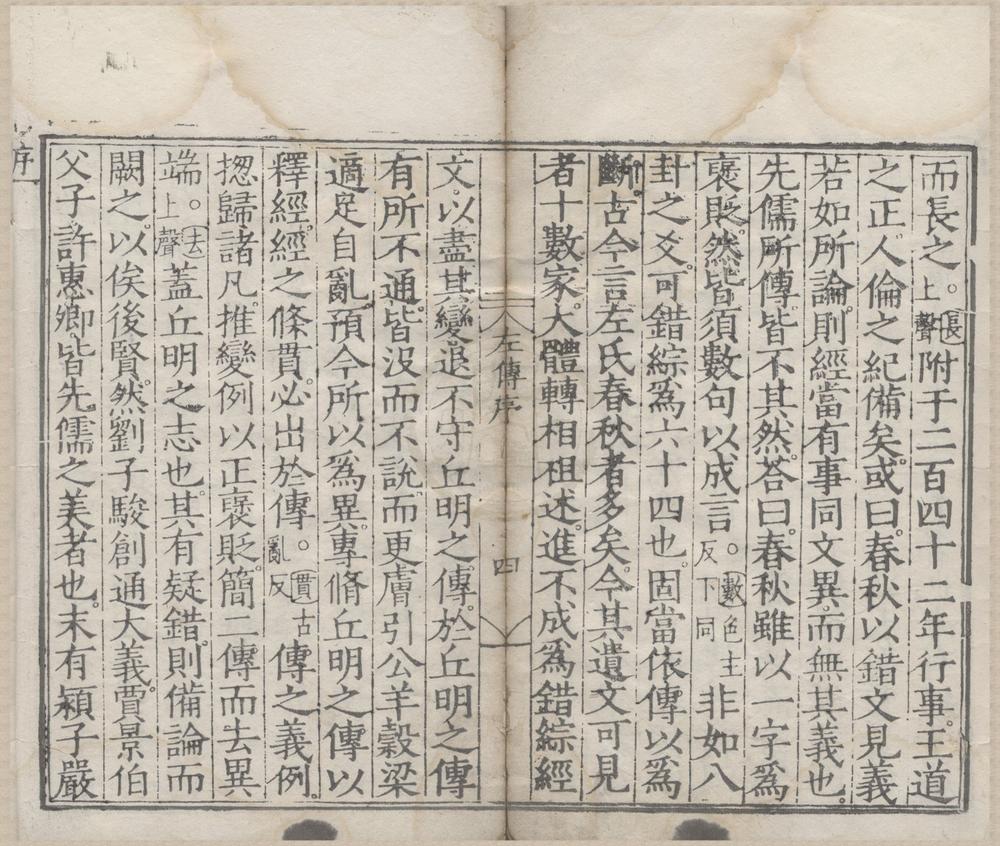 而長之。長上聲附于二百四十二年行事王道
之正人倫之紀備矣或曰春秋以錯文見義
若如所論則經當有事同文異而無其義也
先儒所傳皆不其然荅曰春秋雖以一字爲
襃貶然皆須數句以成言。數色主反下同非如八
卦之爻可錯綜爲六十四也固當依傳以爲
斷古今言左氏春秋者多矣今其遺文可見
者十數家大體轉相祖述進不成爲錯綜經
左傳序
四
文以盡其變退不守丘明之傳於丘明之傳
有所不通皆沒而不說而更膚引公羊穀梁
適足自亂預今所以爲異專脩丘明之傳以
釋經經之條貫必出於傳。貫古亂反傳之義例
揔歸諸凡推變例以正襃貶簡二傳而去異
端。去上聲蓋丘明之志也其有疑錯則備論而
闕之以俟後賢然劉子駿創通大義賈景伯
父子許惠卿皆先儒之美者也末有潁子嚴
序